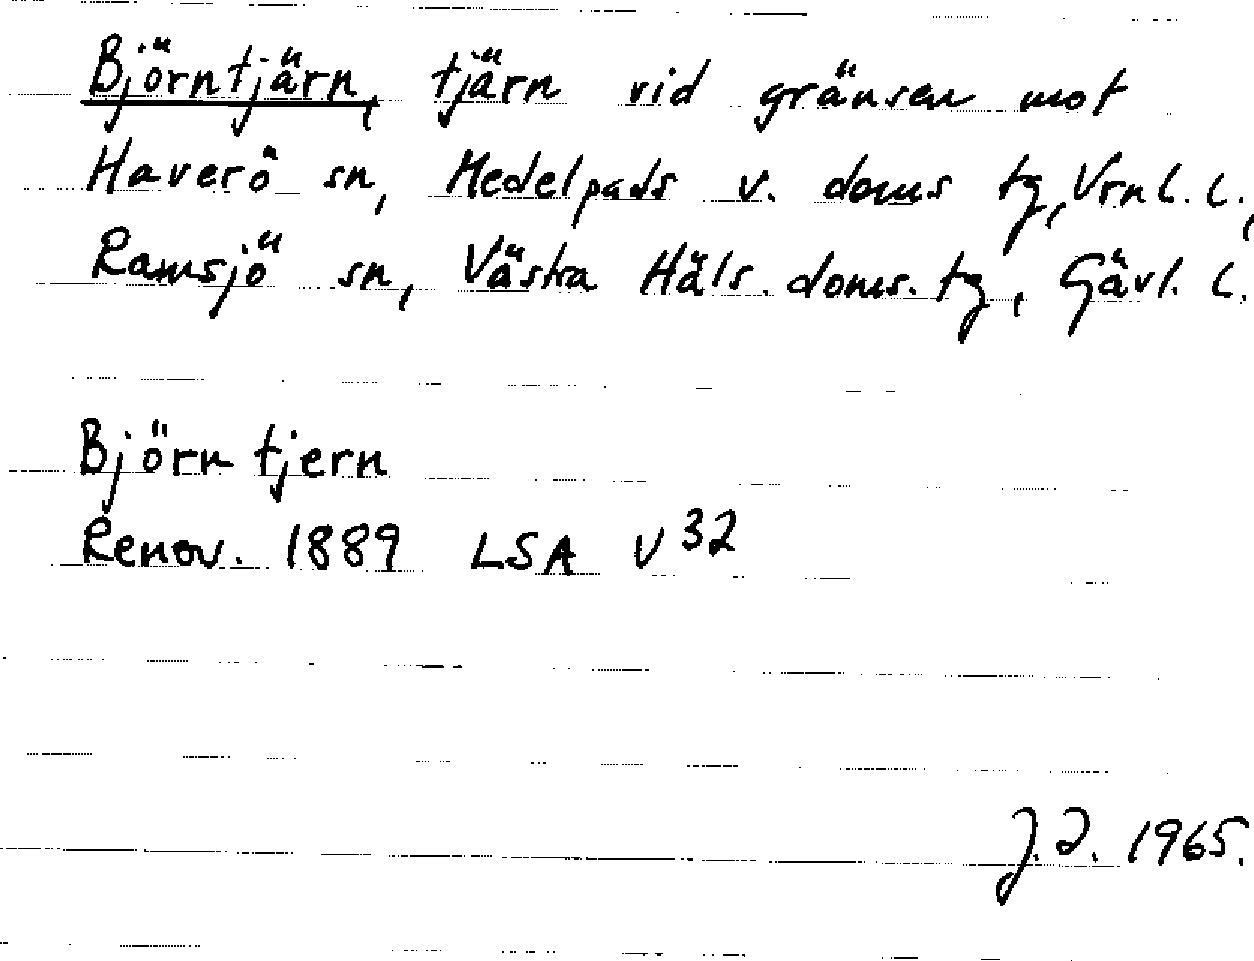 Björntjärn, tjärn vid gränsen mot
Haverö sn, Medelpads v. doms tg, Vrnl. l.,
Ramsjö sn, Västra Häls. doms. tg, Gävl. l.
Björntjern
Renov. 1889 LSA V32
1965.